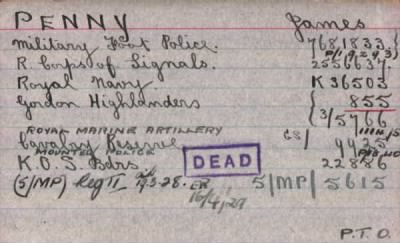 PENNY James
Military Foot Police. 7681833
R. Corps of Signals. 2556637
Royal Navy. K 36503
Gordon Highlanders 855
3/5766
ROYAL MARINE ARTILLERY
Cavalry Reserve CS/ 9925
MOUNTED POLICE
K.O.S. Bdrs DEAD 22886
(5/MP) Reg II 19.3.28. ER 5/MP/5615
16/4/29
P.T.O.